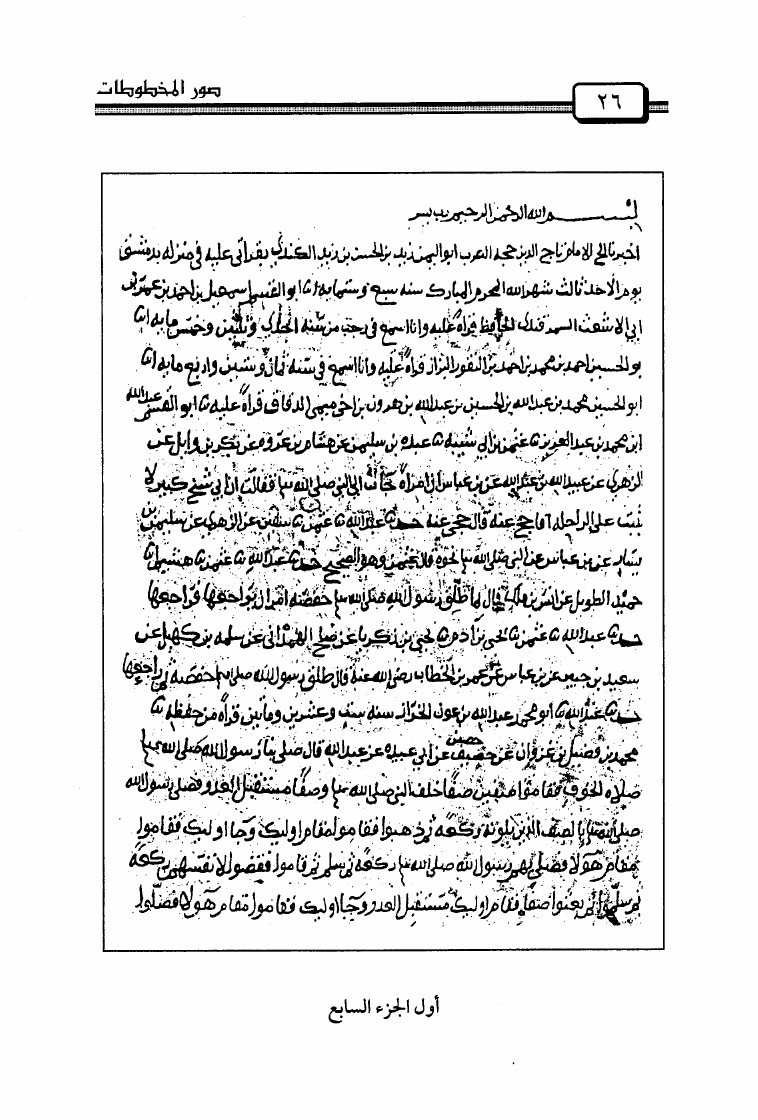 صور المخطوطات
٢٦
بسم الله الرحمن الرحيم رب يسر
اخبرنا الامام تاج الدين حجه العرب ابو اليمن زيد بن الحسن بن زيد الكندي بقراتي عليه في منزله بدمشق
يوم الاحد ثالث شهر الله المحرم المبارك سنه سبع وستمايه ابا ابو القسم اسمعيل بن احمد بن عمر بن
ابي الاشعث السمرقندي الحافظ قراه عليه وانا اسمع في رجب من سنه وثلثين وخمس مايه ابا
بو الحسين احمد بن محمد بن احمد بن النقور البزاز قراه عليه وانا اسمع في سنه ثمان وستين واربع مايه ابا
ابو الحسين محمد بن عبد الله بن الحسين بن عبد الله بن هرون بن اخي ميمي الدقاق قراه عليه ثا ابو القسم عبد الله
ابن محمد بن عبد العزيز ثا عثمن بن ابي شيبه ثا عبده بن سليمن عن هشام بن عروه عن بكر بن وايل عن
الزهري عن عبيد الله بن عبد الله عن بن عباس ان امراه جات الى النبي صلى الله فقالت ان ابي شيخ كبير لا
يثبت على الراحله افاحج عنه قال حجي عنه حدثنا عبد الله ثا عثمن ثا سفين عن الزهري عن سليمن بن
يسار عن بن عباس عن النبي صلى الله نحوه قال عثمن وهو الصحيح حدثنا عبد الله ثا عثمن ثا هشيم ابا
حميد الطويل عن انس بن ملك قال لما طلق رسول الله صلى الله حفصه امر ان يراجعها فراجعها
حدثنا عبد الله ثا عثمن ثا يحيى بن ادم ثا يحيى بن زكريا عن صلح الهمداني عن سلمه بن كهيل عن
سعيد بن جبير عن بن عباس عن عمر بن الخطاب رضي الله عنه قال طلق رسول الله صلى الله حفصه ثم راجعها
حدثنا عبد الله ثا ابو محمد عبد الله بن عون الخراز سنه ست وعشرين ومايتين قراه من حفظه ثا
محمد بن فضيل بن غزوان عن خصيف عن ابي عبيده عن عبد الله قال صلى بنا رسول الله صلى الله
صلاه الخوف فقاموا صفين صفا خلف النبي صلى الله وصفا مستقبل العدو فصلى رسول الله
صلى الله بالصف الذين يلونه ركعه ثم ذهبوا فقاموا مقام اوليك وجا اوليك فقاموا
مقام هولا فصلى بهم رسول الله صلى الله ركعه ثم سلم ثم قاموا فقضوا لانفسهم ركعه
ثم سلموا فقام اوليك مستقبل العدو وجا اوليك فقاموا مقام هولا فصلوا
أول الجزء السابع